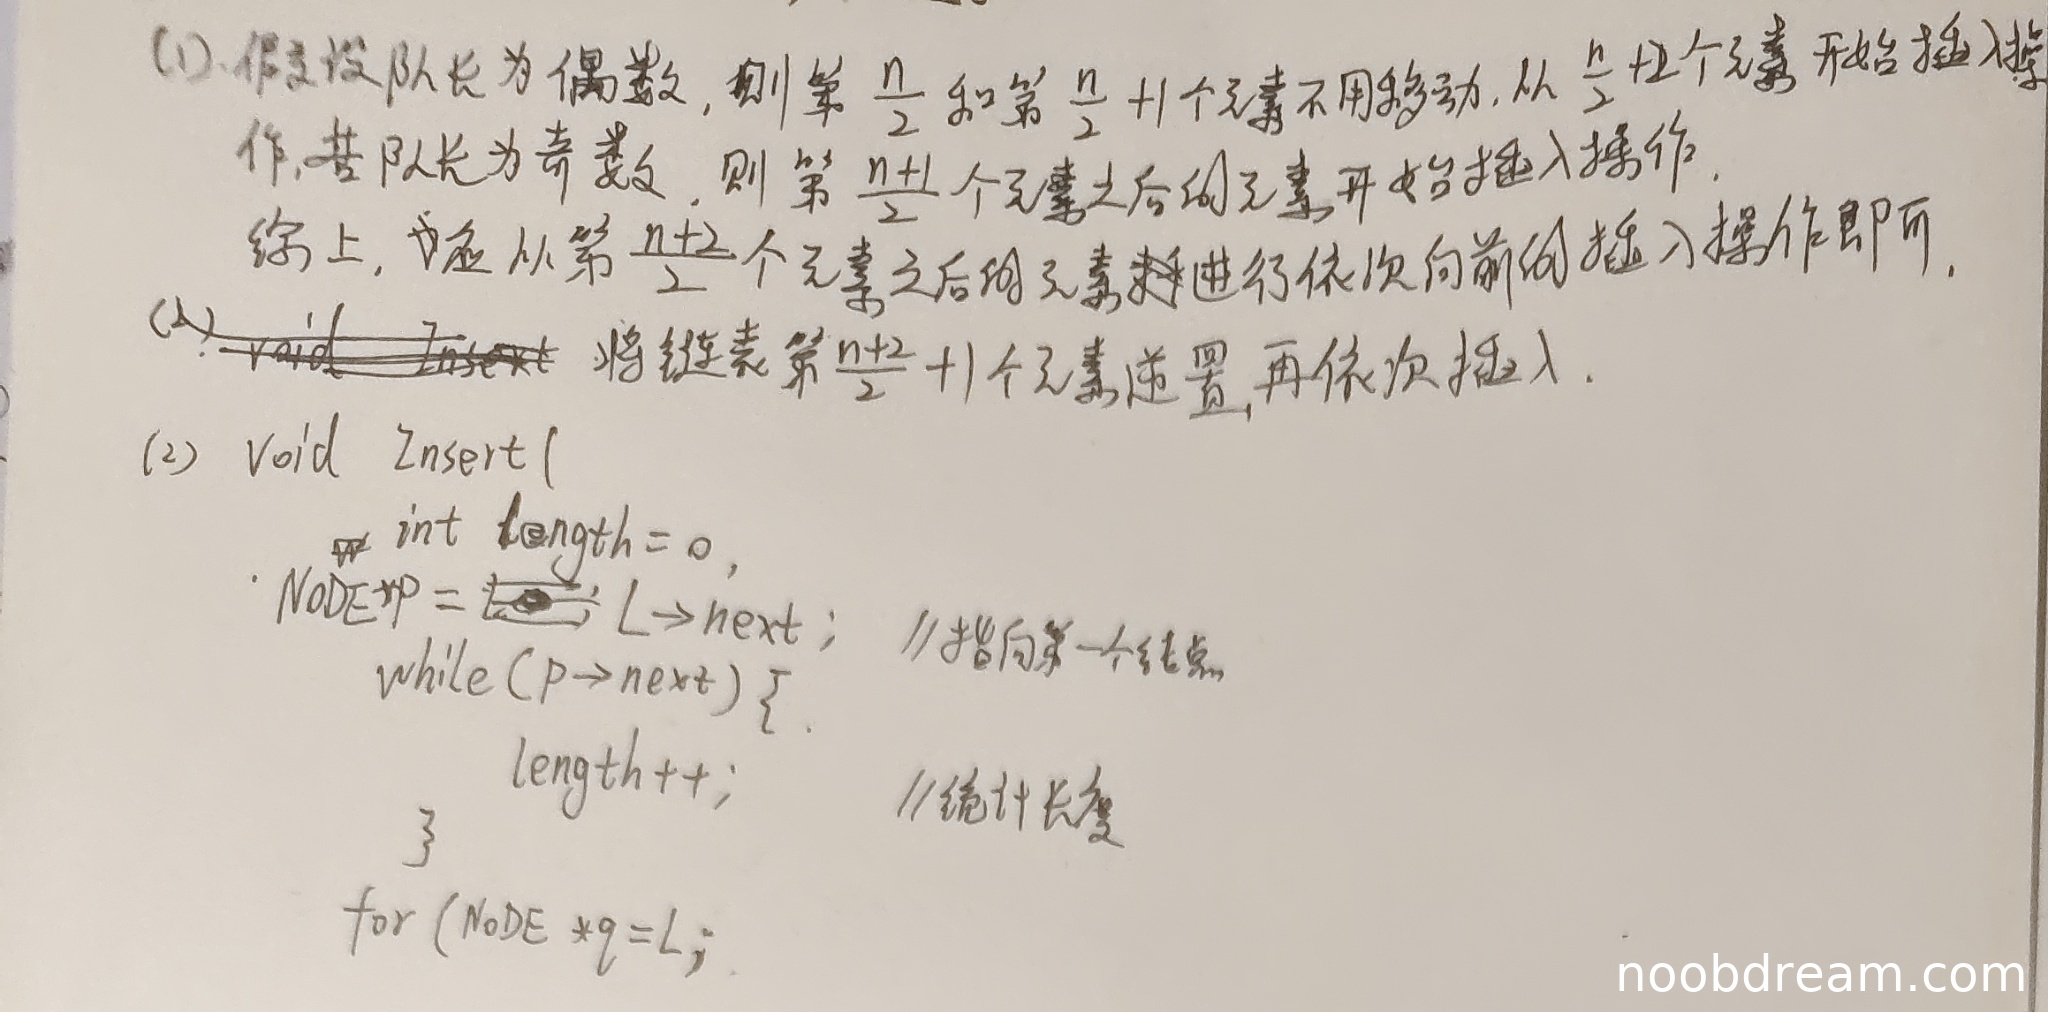 (1). 假设队长为偶数, 则第 n/2 和第 n/2 +1个元素不用移动. 从 n/2 +2个元素开始插入操
作, 若队长为奇数, 则第 n+1/2 个元素之后的元素开始插入操作.
综上, 应从第 n+2/2 个元素之后的元素进行依次向前的插入操作即可.
将链表第 n+2/2 +1个元素逆置, 再依次插入.
(2) void Insert(
int length=0,
NODE*P= L→next; //指向第一个结点
while(P→next){
length++; //统计长度
}
for(NODE *q=L;
noobdream.com